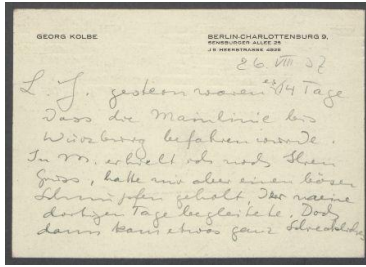 GEORG KOLBE
BERLIN-CHARLOTTENBURG 9,
SENSBURGER ALLEE 25
J 9 HEERSTRASSE 4525
26. VIII 32
L. J. gestern waren es 14 Tage
dass die Mainlinie bis
Würzburg befahren wurde.
In M. erhielt ich noch Ihren
Gruss, hatte mir aber einen bösen
Schnupfen geholt, der meine
dortigen Tage begleitete. Doch
dann kam etwas ganz Schreckliches